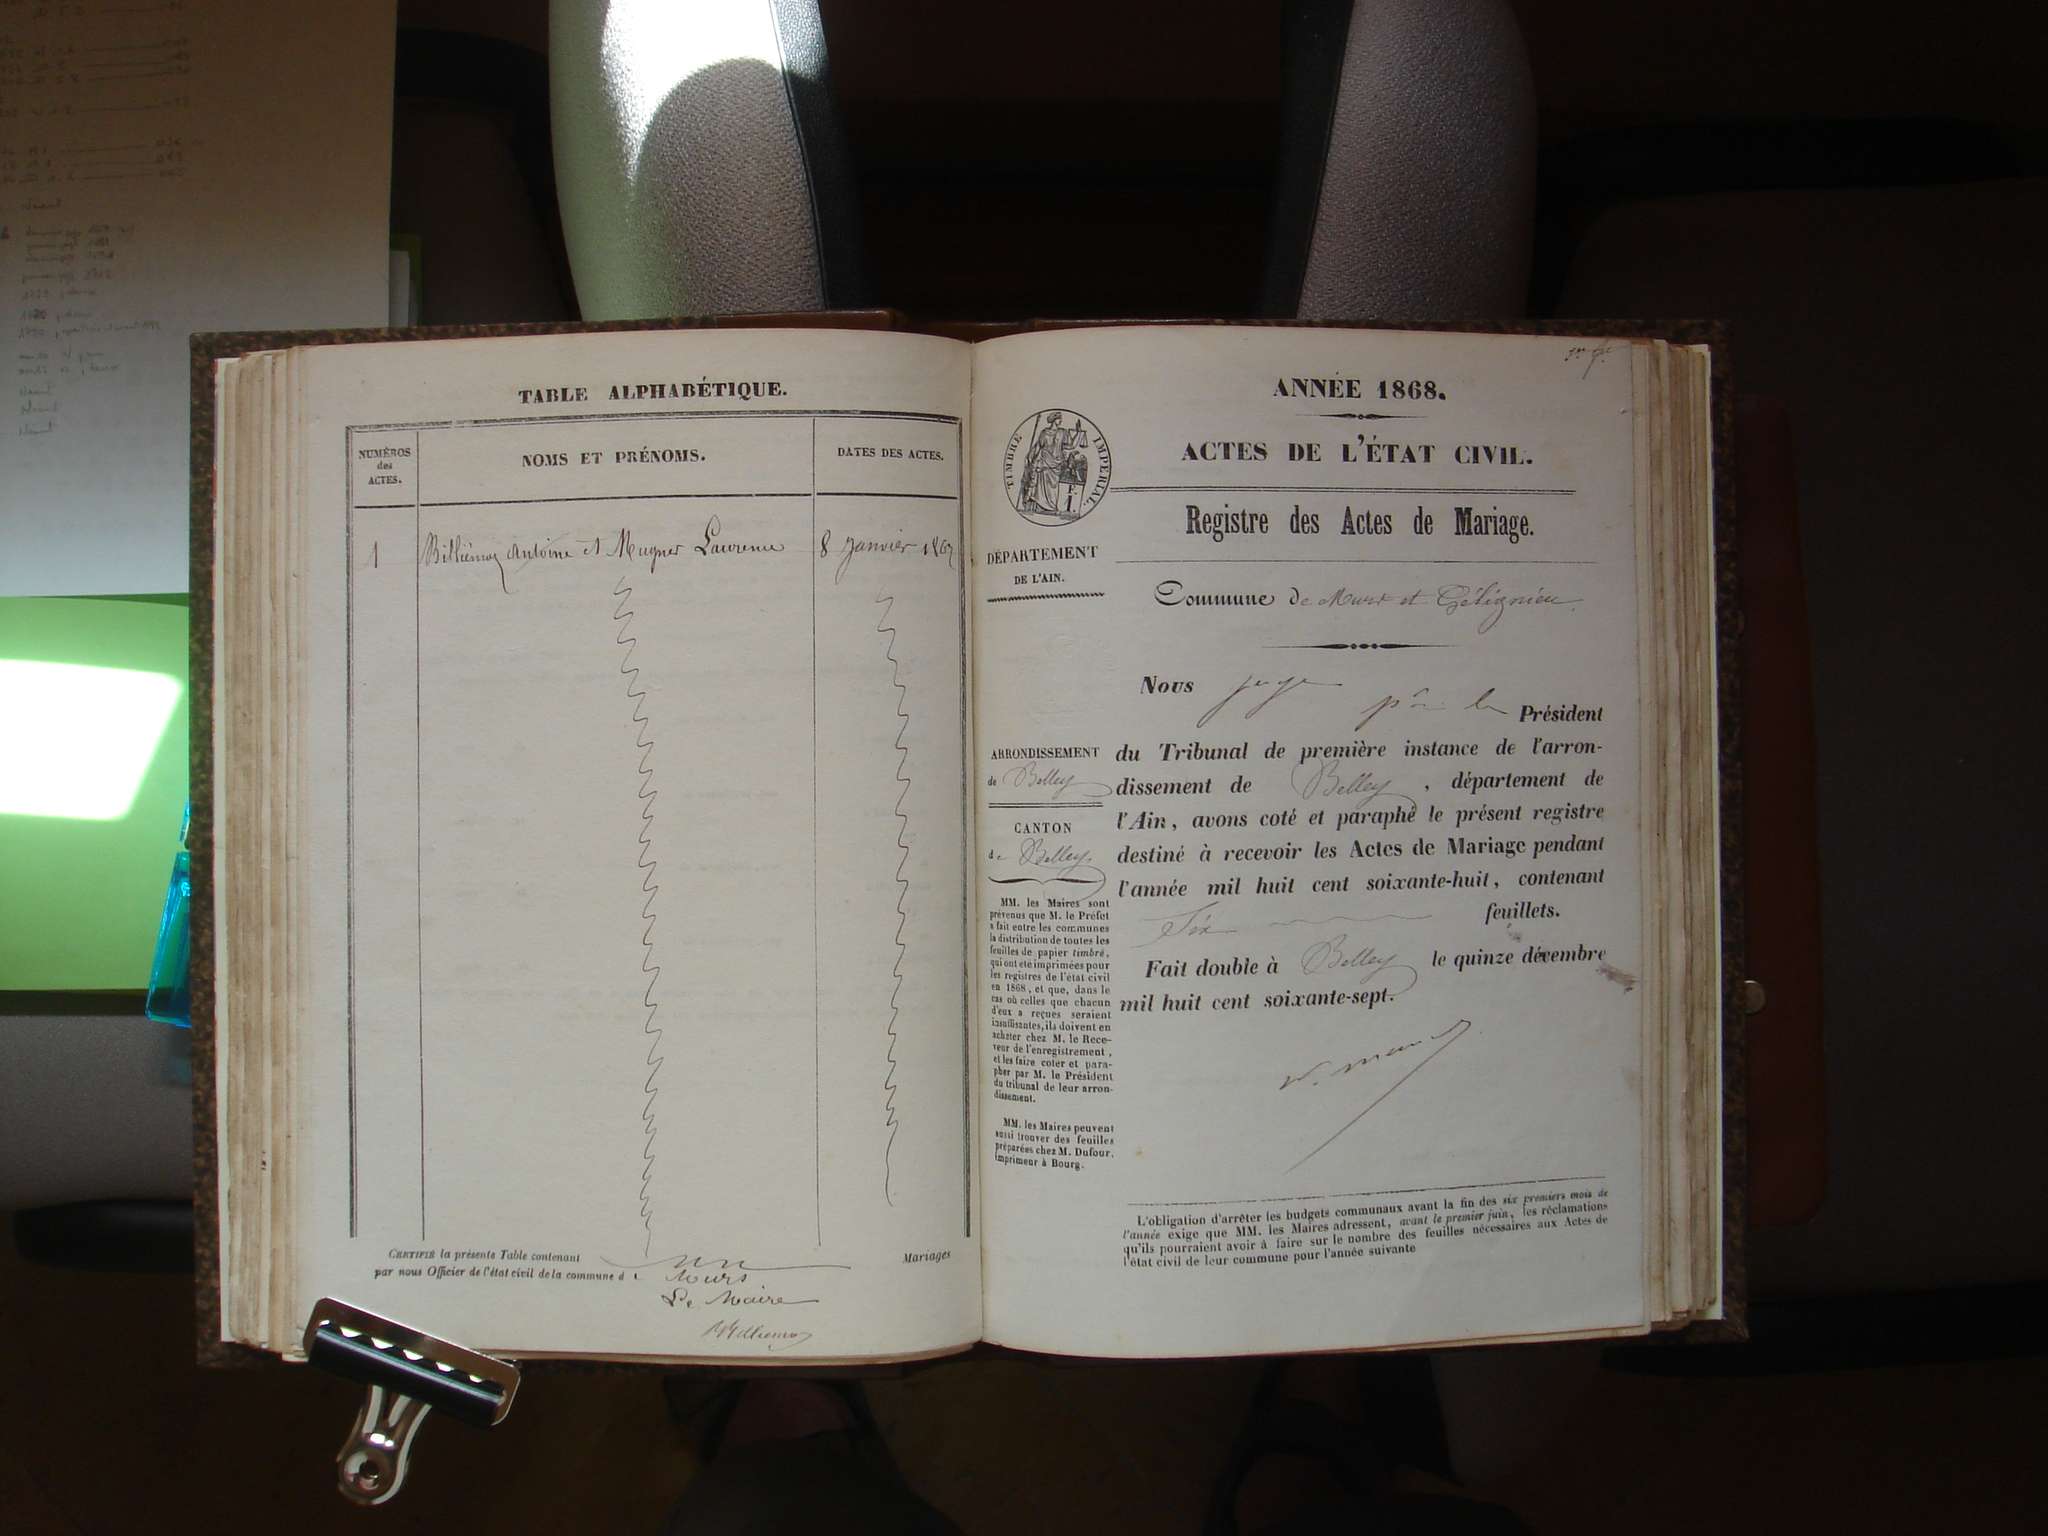 TABLE ALPHABÉTIQUE.
NUMÉROS
des
ACTES.
NOMS ET PRÉNOMS.
DATES DES ACTES.
1 Billiémoz Antoine et Mugner Laurence 8 Janvier 1867
CERTIFIÉ la présente Table contenant un Mariages
par nous Officier de l'état civil de la commune d e Murs
Le Maire
Billiemoz
ANNÉE 1868.
ACTES DE L'ÉTAT CIVIL.
TIMBRE IMPERIAL.
Registre des Actes de Mariage.
DÉPARTEMENT
DE L'AIN.
Commune de Murs et Gélignieu.
Nous juge
pr le Président
ARRONDISSEMENT
de Belley
CANTON
de Belley.
du Tribunal de première instance de l'arron-
dissement de Belley, département de
l'Ain, avons coté et paraphé le présent registre
destiné à recevoir les Actes de Mariage pendant
l'année mil huit cent soixante-huit, contenant
Six feuillets.
Fait double à Belley le quinze décembre
mil huit cent soixante-sept.
MM. les Maires sont
prévenus que M. le Préfet
a fait entre les communes
la distribution de toutes les
feuilles de papier timbré,
qui ont été imprimées pour
les registres de l'état civil
en 1868, et que, dans le
cas où celles que chacun
d'eux a reçues seraient
insuffisantes, ils doivent en
acheter chez M. le Rece-
veur de l'enregistrement,
et les faire coter et para-
pher par M. le Président
du tribunal de leur arron-
dissement.
MM. les Maires peuvent
aussi trouver des feuilles
préparées chez M. Dufour,
imprimeur à Bourg.
L'obligation d'arrêter les budgets communaux avant la fin des six premiers mois de
l'année exige que MM. les Maires adressent, avant le premier juin, les réclamations
qu'ils pourraient avoir à faire sur le nombre des feuilles nécessaires aux Actes de
l'état civil de leur commune pour l'année suivante